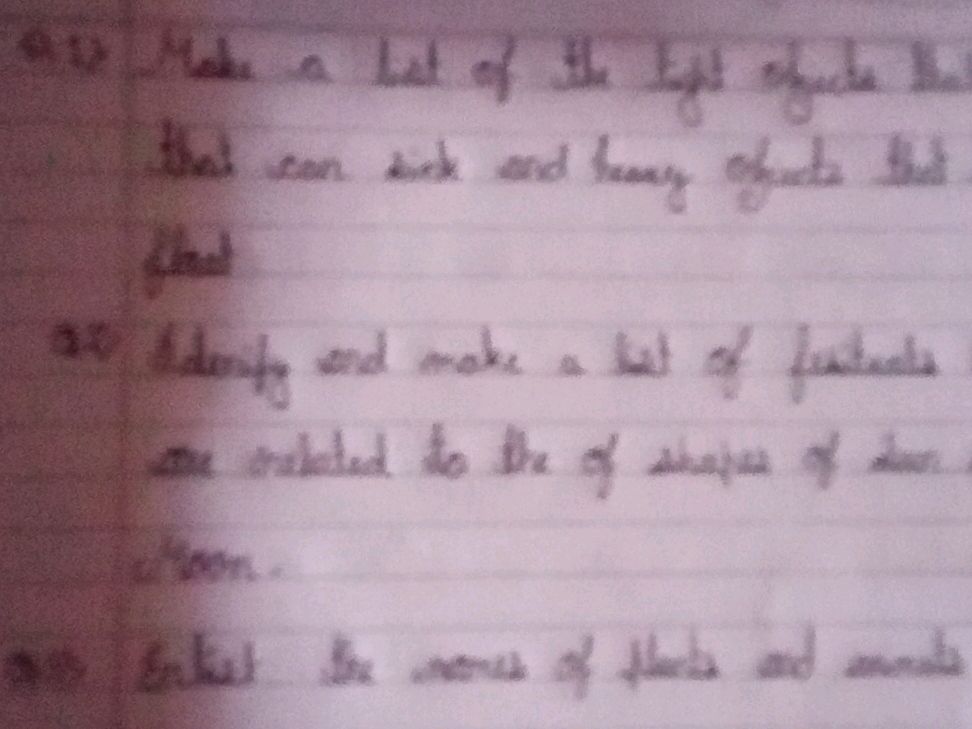 Make a list of the light objects that
that can sink and heavy objects that
float
and make a list of festivals
are related to the of shapes of
Moon.
Enlist the names of plants and